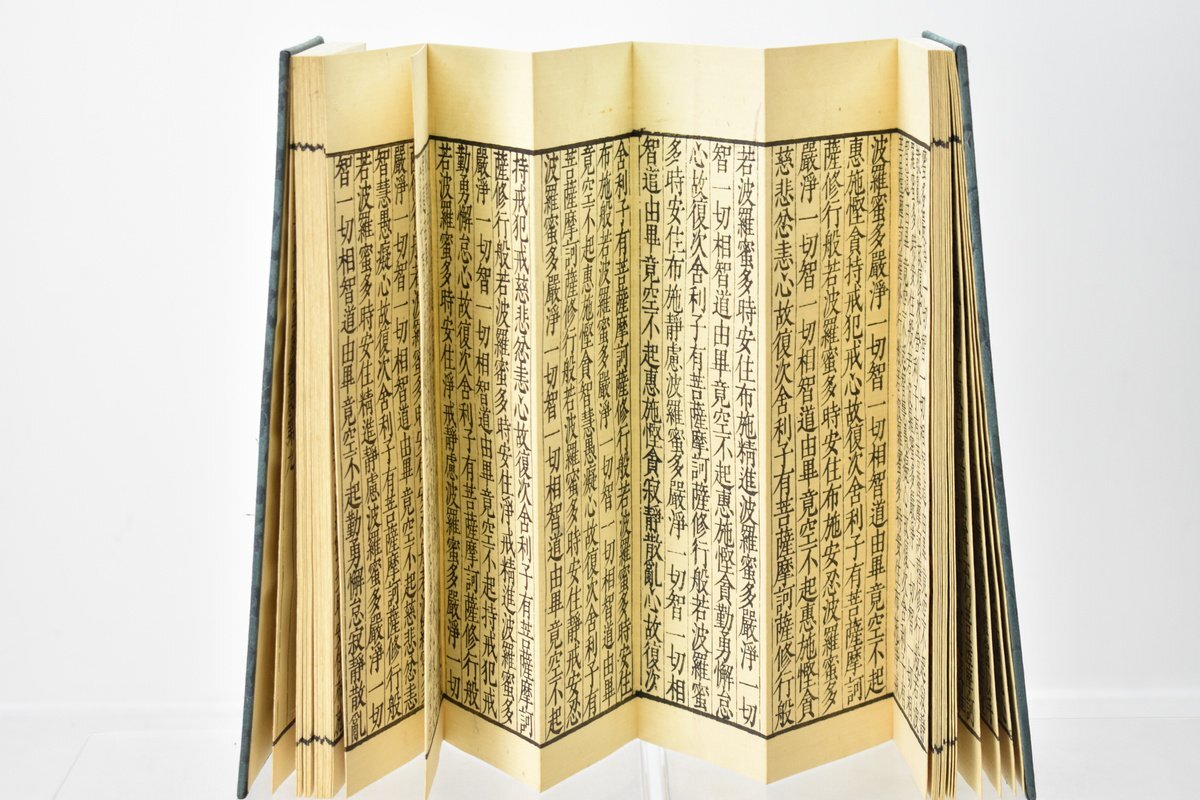 波羅蜜多嚴淨一切智一切相智道由畢竟空不起
惠施慳貪持戒犯戒心故復次舍利子有菩薩摩訶
薩修行般若波羅蜜多時安住布施安忍波羅蜜多
嚴淨一切智一切相智道由畢竟空不起惠施慳貪
慈悲忿恚心故復次舍利子有菩薩摩訶薩修行般
若波羅蜜多時安住布施精進波羅蜜多嚴淨一切
智一切相智道由畢竟空不起惠施慳貪勤勇懈怠
心故復次舍利子有菩薩摩訶薩修行般若波羅蜜
多時安住布施靜慮波羅蜜多嚴淨一切智一切相
智道由畢竟空不起惠施慳貪寂靜散亂心故復次
舍利子有菩薩摩訶薩修行般若波羅蜜多時安住
布施般若波羅蜜多嚴淨一切智一切相智道由畢
竟空不起惠施慳貪智慧愚癡心故復次舍利子有
菩薩摩訶薩修行般若波羅蜜多時安住淨戒安忍
波羅蜜多嚴淨一切智一切相智道由畢竟空不起
持戒犯戒慈悲忿恚心故復次舍利子有菩薩摩訶
薩修行般若波羅蜜多時安住淨戒精進波羅蜜多
嚴淨一切智一切相智道由畢竟空不起持戒犯戒
勤勇懈怠心故復次舍利子有菩薩摩訶薩修行般
若波羅蜜多時安住淨戒靜慮波羅蜜多嚴淨一切
嚴淨一切智一切相智道由畢竟空不起慈悲忿恚
智慧愚癡心故復次舍利子有菩薩摩訶薩修行般
若波羅蜜多時安住精進靜慮波羅蜜多嚴淨一切
智一切相智道由畢竟空不起勤勇懈怠寂靜散亂